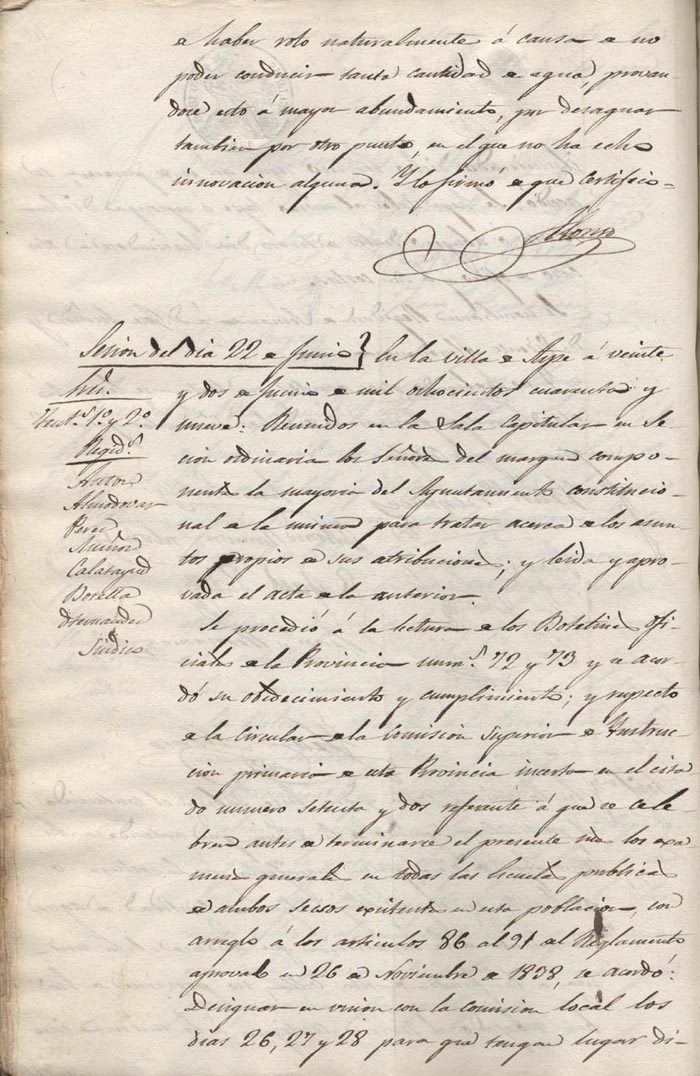 e haber roto naturalmente á causa e no
poder conducir tanta cantidad e agua, provan-
doce esto á mayor abundamiento, por desaguar
tambien por otro punto, en el que no ha echo
innovacion alguna. Y lo firmó e que certifico=
Sesion del dia 22 e Junio} En la villa e Aspe á veinte
y dos e Junio e mil ochocientos cuarenta y
nueve: Reunidos en la Sala Capitular en Se-
cion ordinaria los Señores del margen compo-
nentes la mayoria del Ayuntamiento constitucio-
nal e la misma para tratar acerca e los asun-
tos propios e sus atribuciones; y leida y apro-
vada el acta e la anterior.
Ten.s 1º. y 2º.
Regid.s
Almodovar
Perez
Muñoz
Calatayud
Botella
Hernandez
Sindico
Se procedió á la lectura e los Boletines ofi-
ciales e la Provincia num.s 72 y 73 y se acor-
dó su obedecimiento y cumplimiento; y respecto
e la Circular e la Comision Superior e Instruc-
cion primaria e esta Provincia incerta en el cita-
do numero setenta y dos referente á que se cele-
bren antes e terminarse el presente mes los exa-
menes generales en todas las Escuelas publicas
e ambos secsos existentes en esta poblacion, con
arreglo á los articulos 86 al 91 el Reglamento
aprovado en 26 e Noviembre e 1838, se acordó:
Designar en union con la Comision local los
dias 26, 27 y 28 para que tengan lugar di-